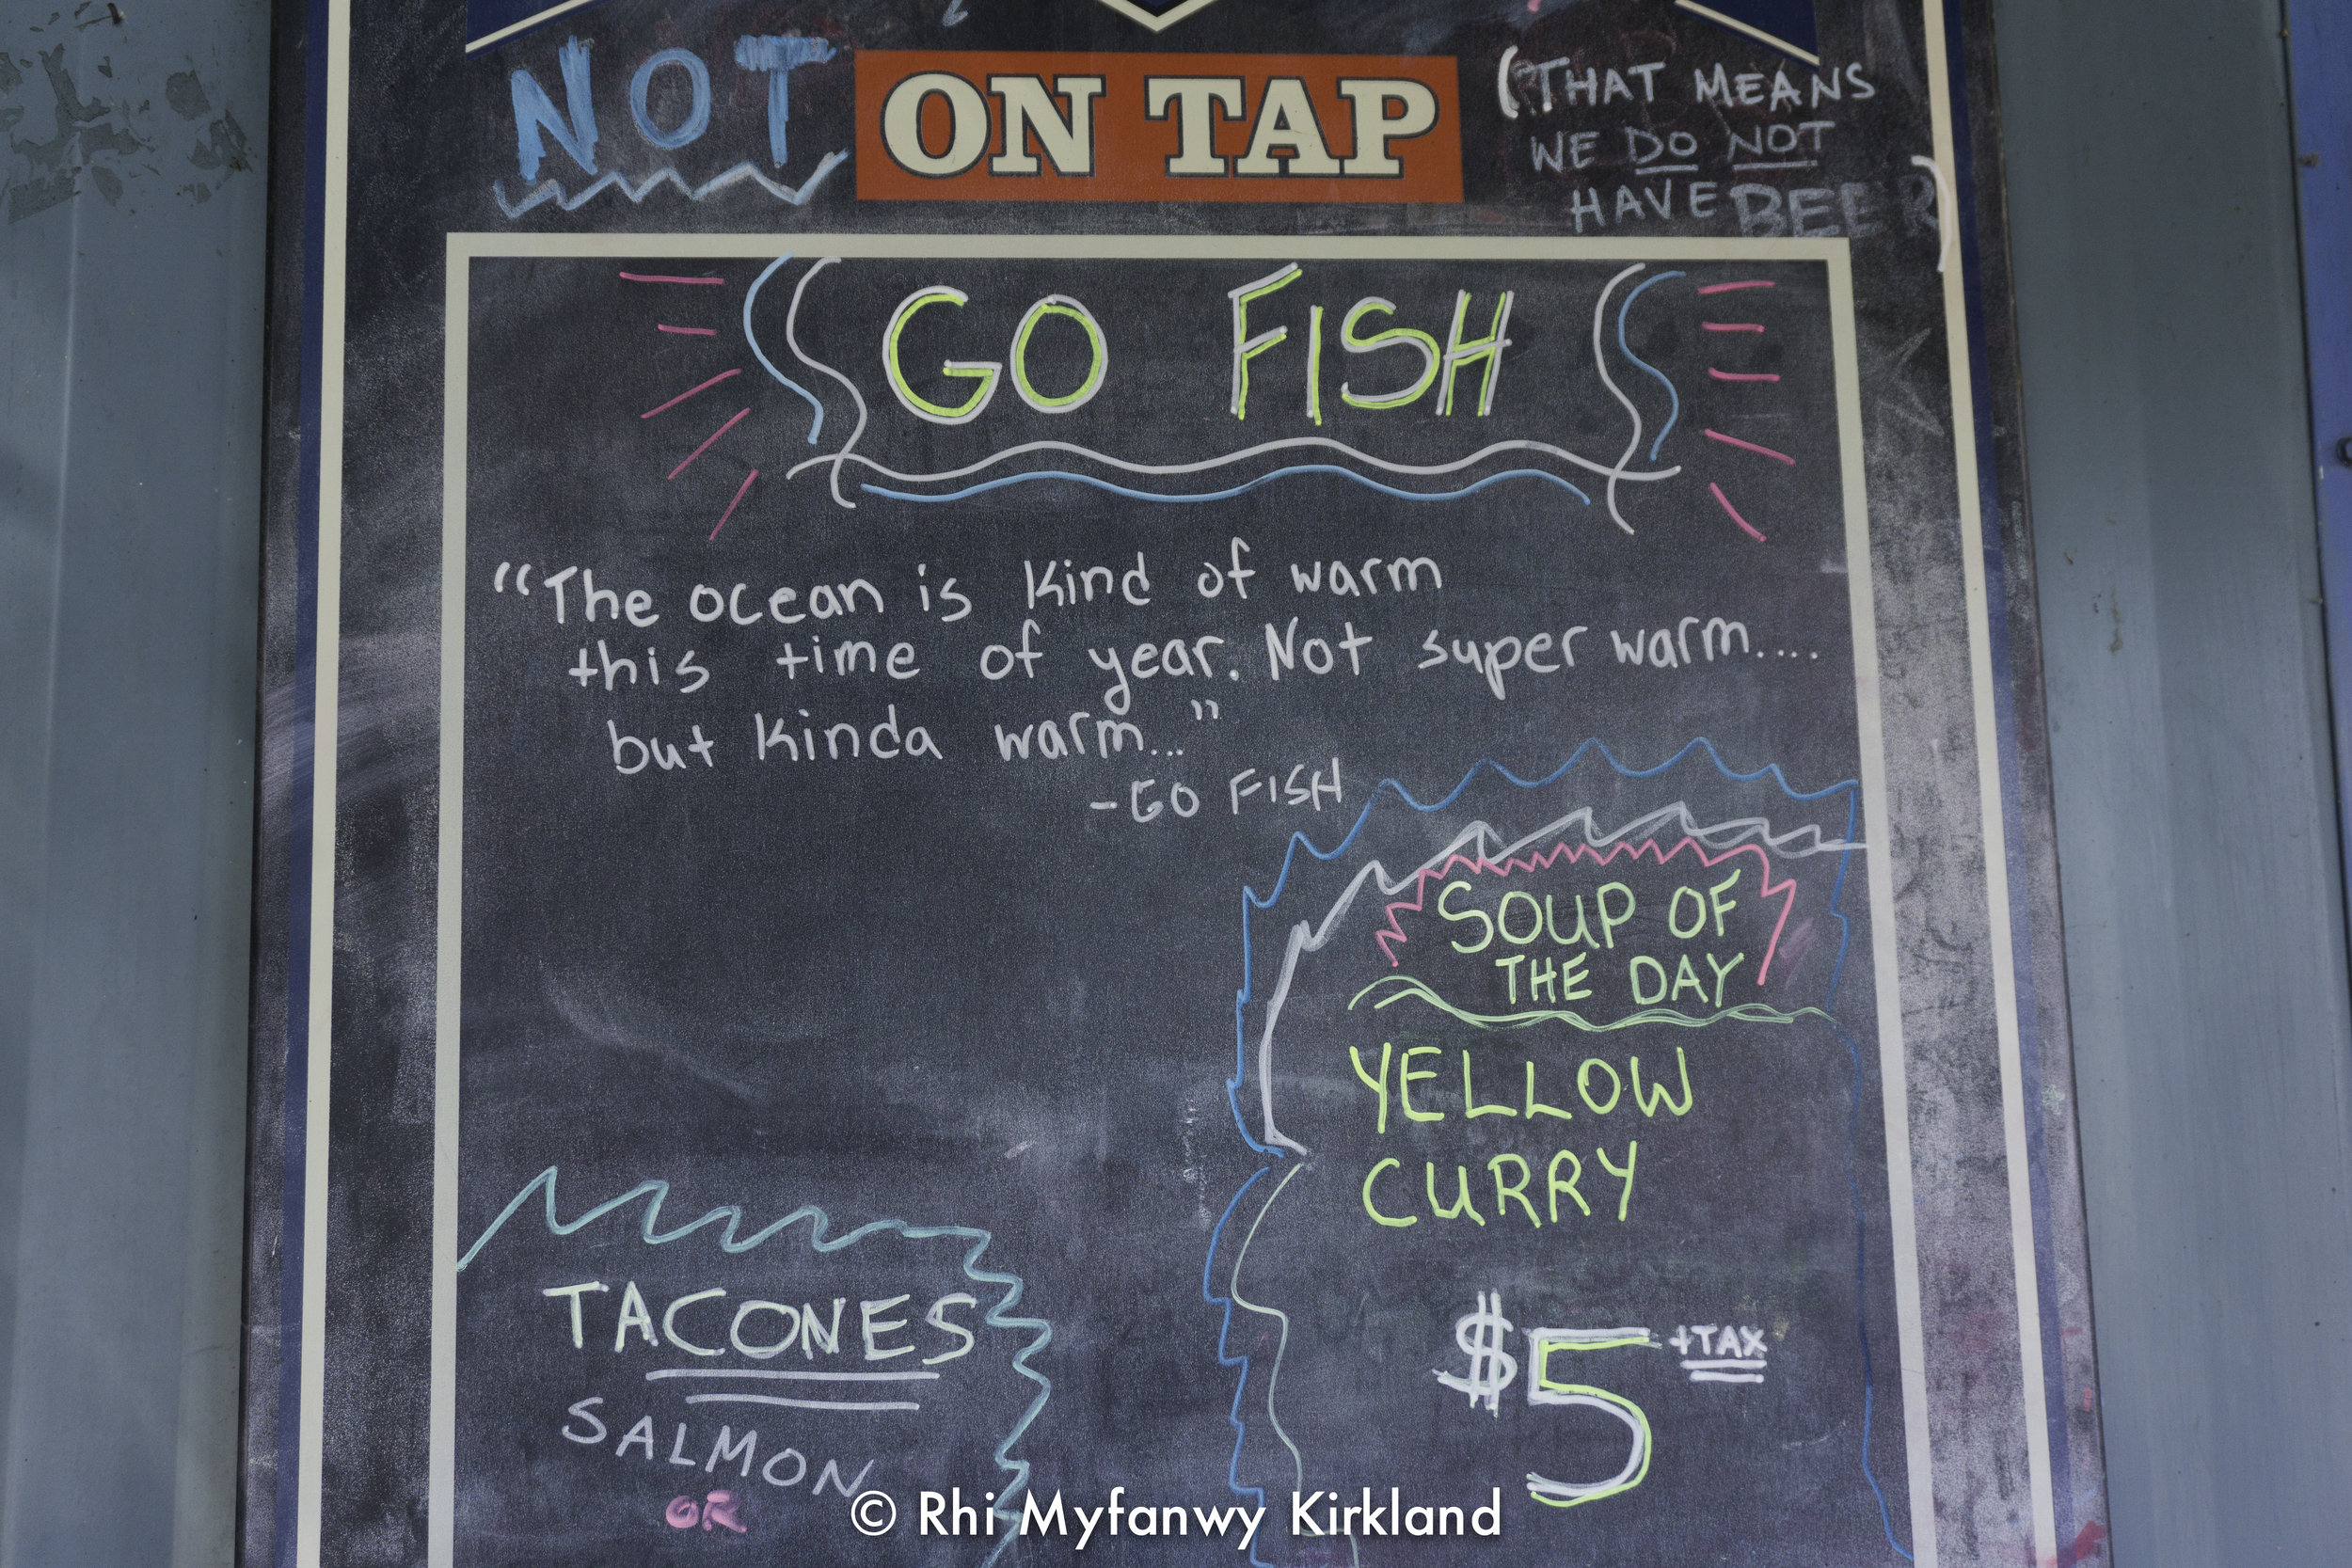 NOT ON TAP
(THAT MEANS
WE DO NOT
HAVE BEER)
GO FISH
"The ocean is kind of warm
this time of year. Not super warm....
but kinda warm..."
-GO FISH
SOUP OF
THE DAY
YELLOW
CURRY
$5 +TAX
TACONES
SALMON
OR
© Rhi Myfanwy Kirkland